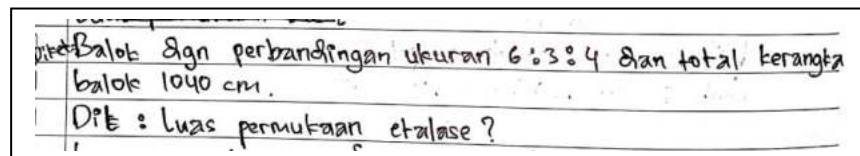 Diket: Balok dgn perbandingan ukuran 6:3:4 dan total kerangka
balok 1040 cm.
Dit : Luas permukaan etalase ?